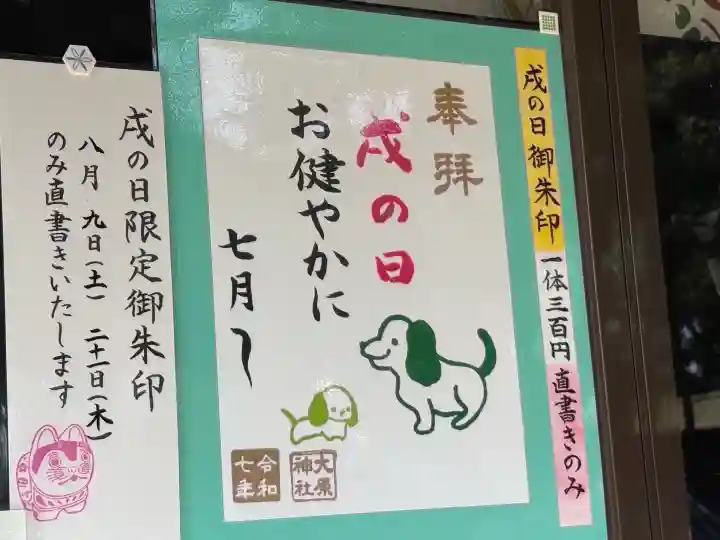 戌の日御朱印
一体三百円
直書きのみ
奉拝
戌の日
お健やかに
七月〜
大原神社
令和七年
戌の日限定御朱印
八月 九日(土) 二十一日(木)
のみ直書きいたします